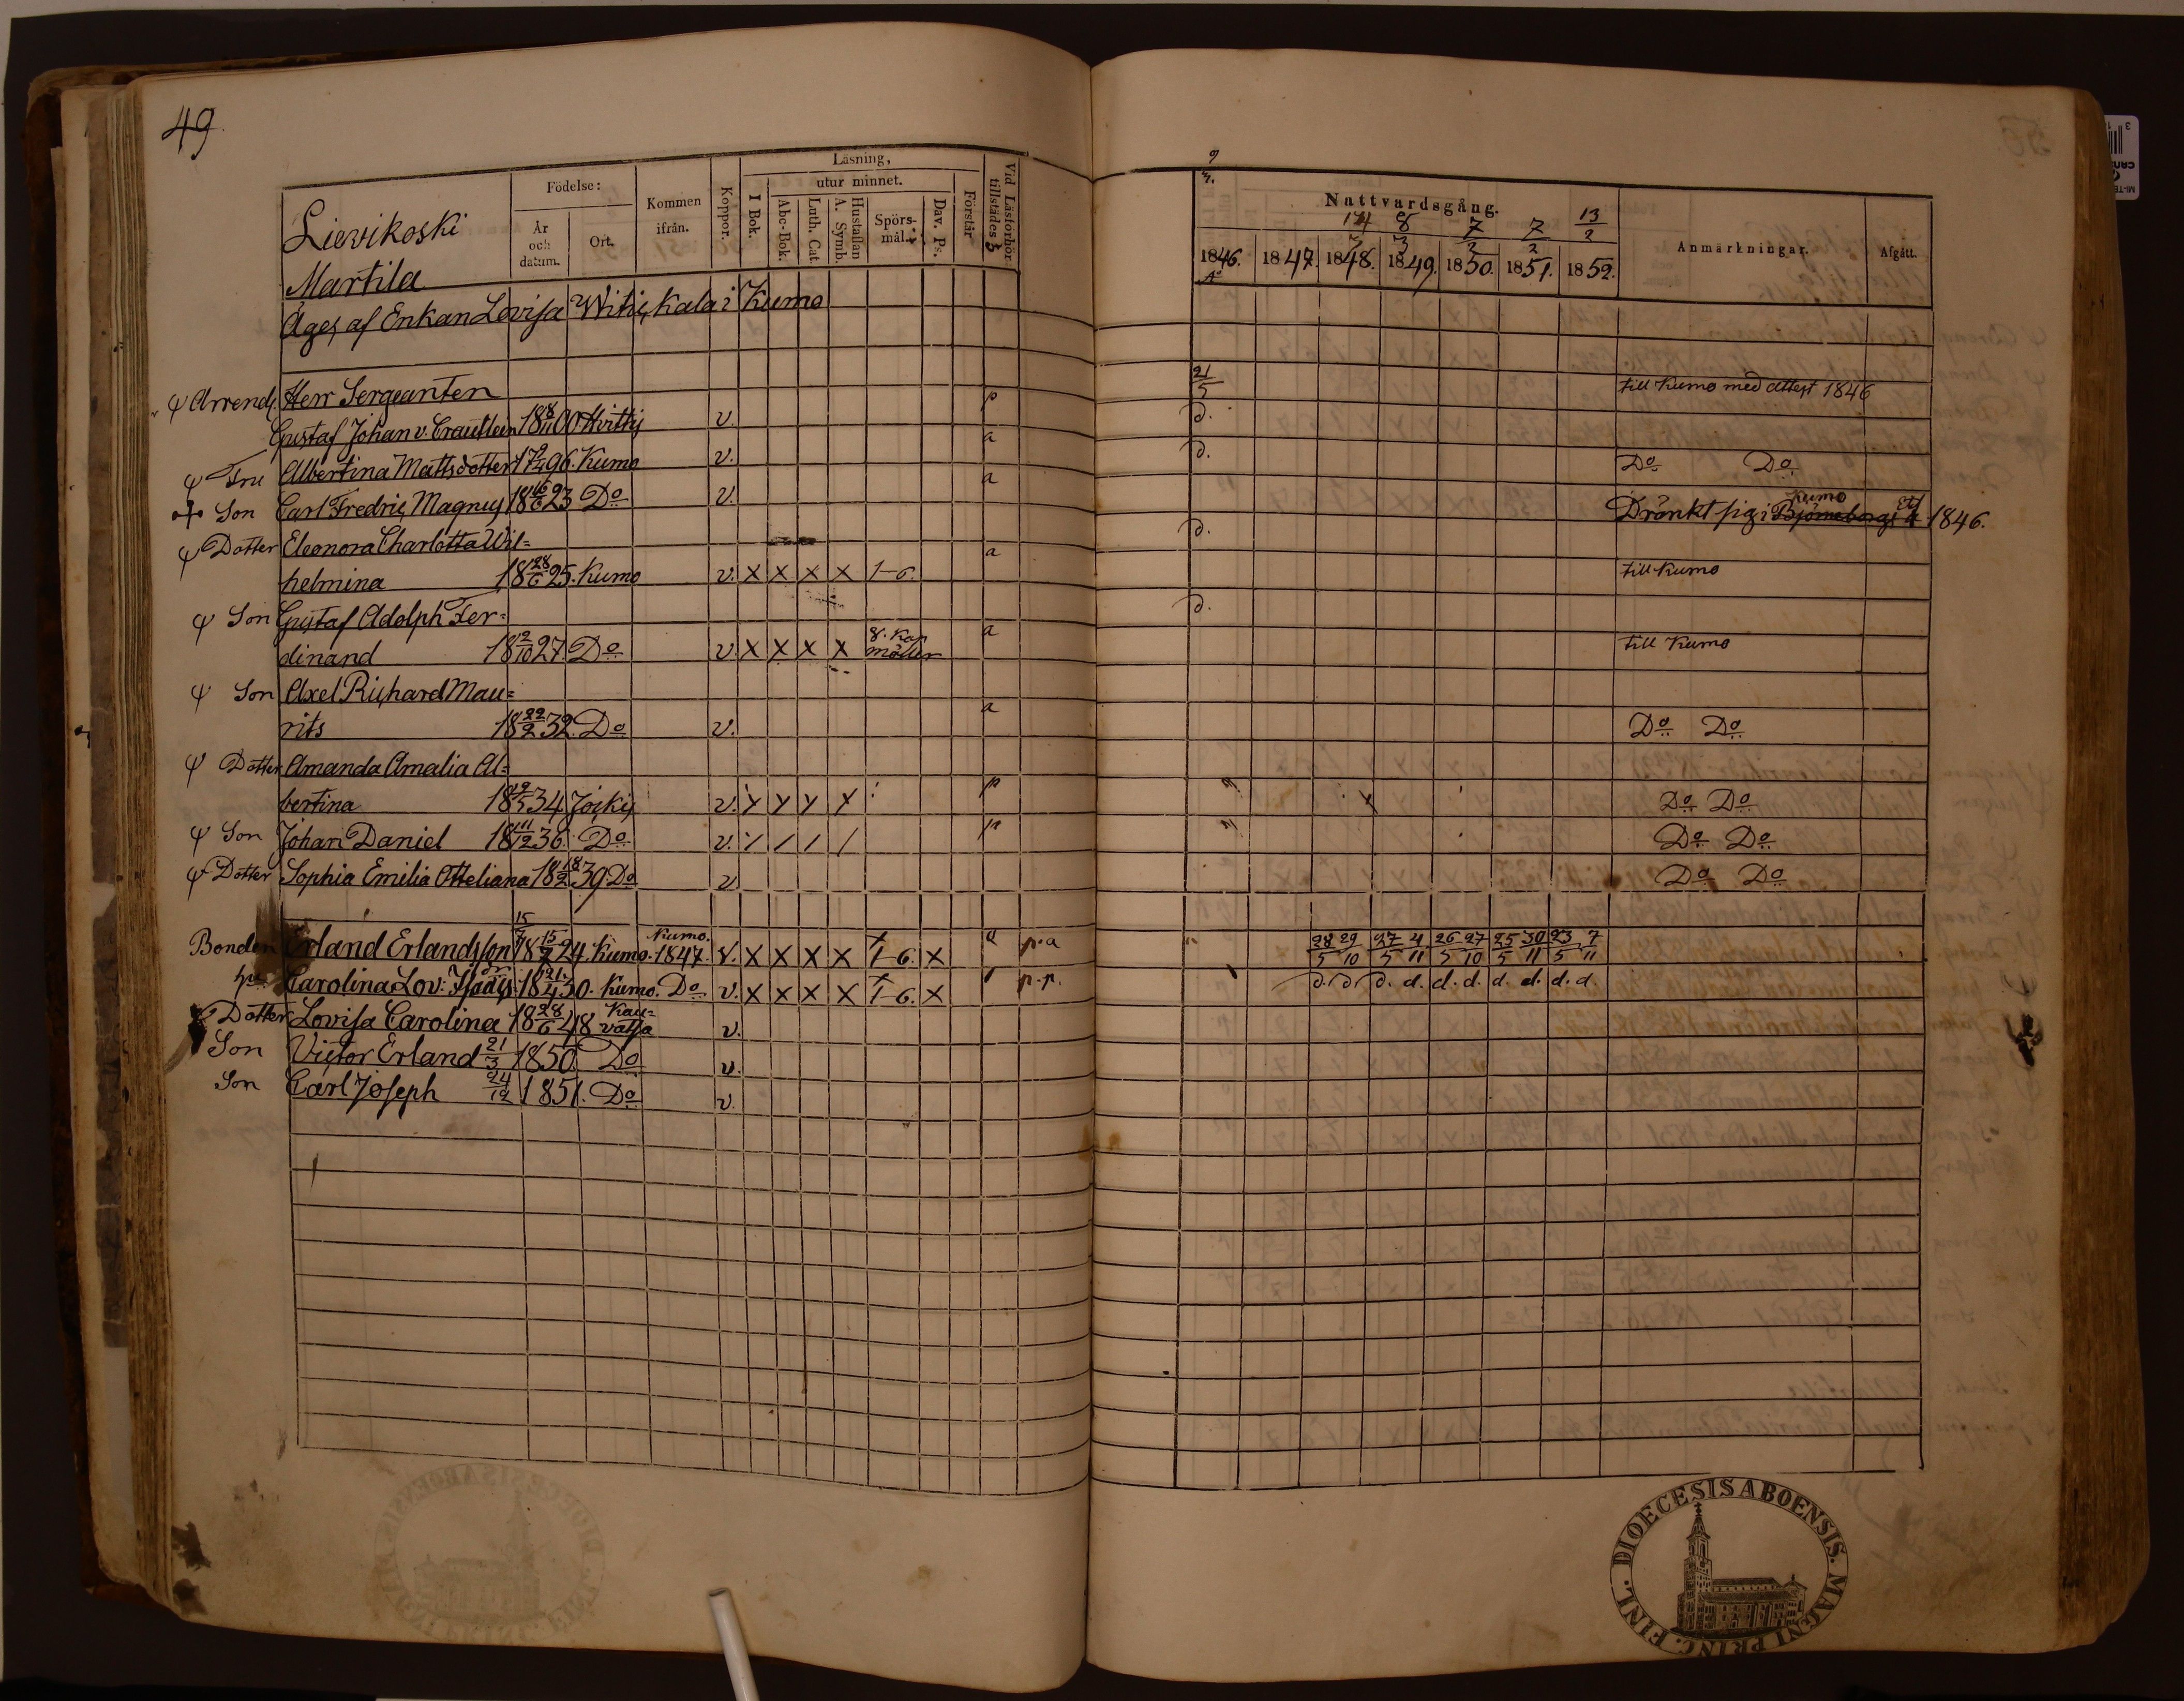 49
Läsning,
Födelse: Kommen ifrån. Koppor. I Bok. utur minnet. Förstår Vid Läsförhör tillstädes
År och datum. Ort. Abc-Bok. Luth. Cat. Hustaflan A. Symb. Spörsmål. Dav. Ps.
Lievikoski
Martila
Äges af Enkan Lovisa Witickala i Kumo
Nattvardsgång. Anmärkningar. Afgått.
14/3 8/3 7/2 7/2 13/2
1846. 1847. 1848. 1849. 1850. 1851. 1852.
Arrend. Herr Sergeanten p 21/5 till Kumo med attest 1846
Gustaf Johan v. Crautlein 18 8/11 00 Hvittis v. d.
Fru Albertina Mattsdotter 96. Kumo v. a d. Do Do
Son Carl Fredric Magnus 18 16/6 23 Do v. a Dränkt sig i Björneborgs å Kumo elf 1846.
Dotter Eleonora Charlotta Wil= d.
helmina 18 28/6 25. Kumo v. x x x x 1-6. a till Kumo
Son Gustaf Adolph Fer= d.
dinand 18 2/10 27. Do v. x x x x 8. Kap möller a till Kumo
Son Axel Richard Mau=
rits 18 22/2 32. Do v. a Do Do
Dotter Amanda Amalia Al=
bertina 18 19/5 34 Jockis v. p Do Do
Son Johan Daniel 18 11/12 36. Do v. / / / / p Do Do
Dotter Sophia Emilia Otteliana 18 18/2 39. Do v Do Do
Bonden Erland Erlandsson 18 15/7 24. Kumo. Kumo. 1847. v. x x x x 1-6. x a p.a 28/5 29/10 27/5 4/11 26/5 27/10 25/5 30/11 23/5 7/11
hu Carolina Lov: Isacs dr 18 21/4 30. Kumo. Do v. x x x x 1-6. x p.p. d. d. d. d. d. d. d. d. d. d.
Dotter Lovisa Carolina 18 28/6 48 Kau=vatsa v.
Son Victor Erland 21/3 1850. Do v.
Son Carl Joseph 24/12 1851. Do v.
DIOECESIS ABOENSIS. MAGNI PRINC. FINL.